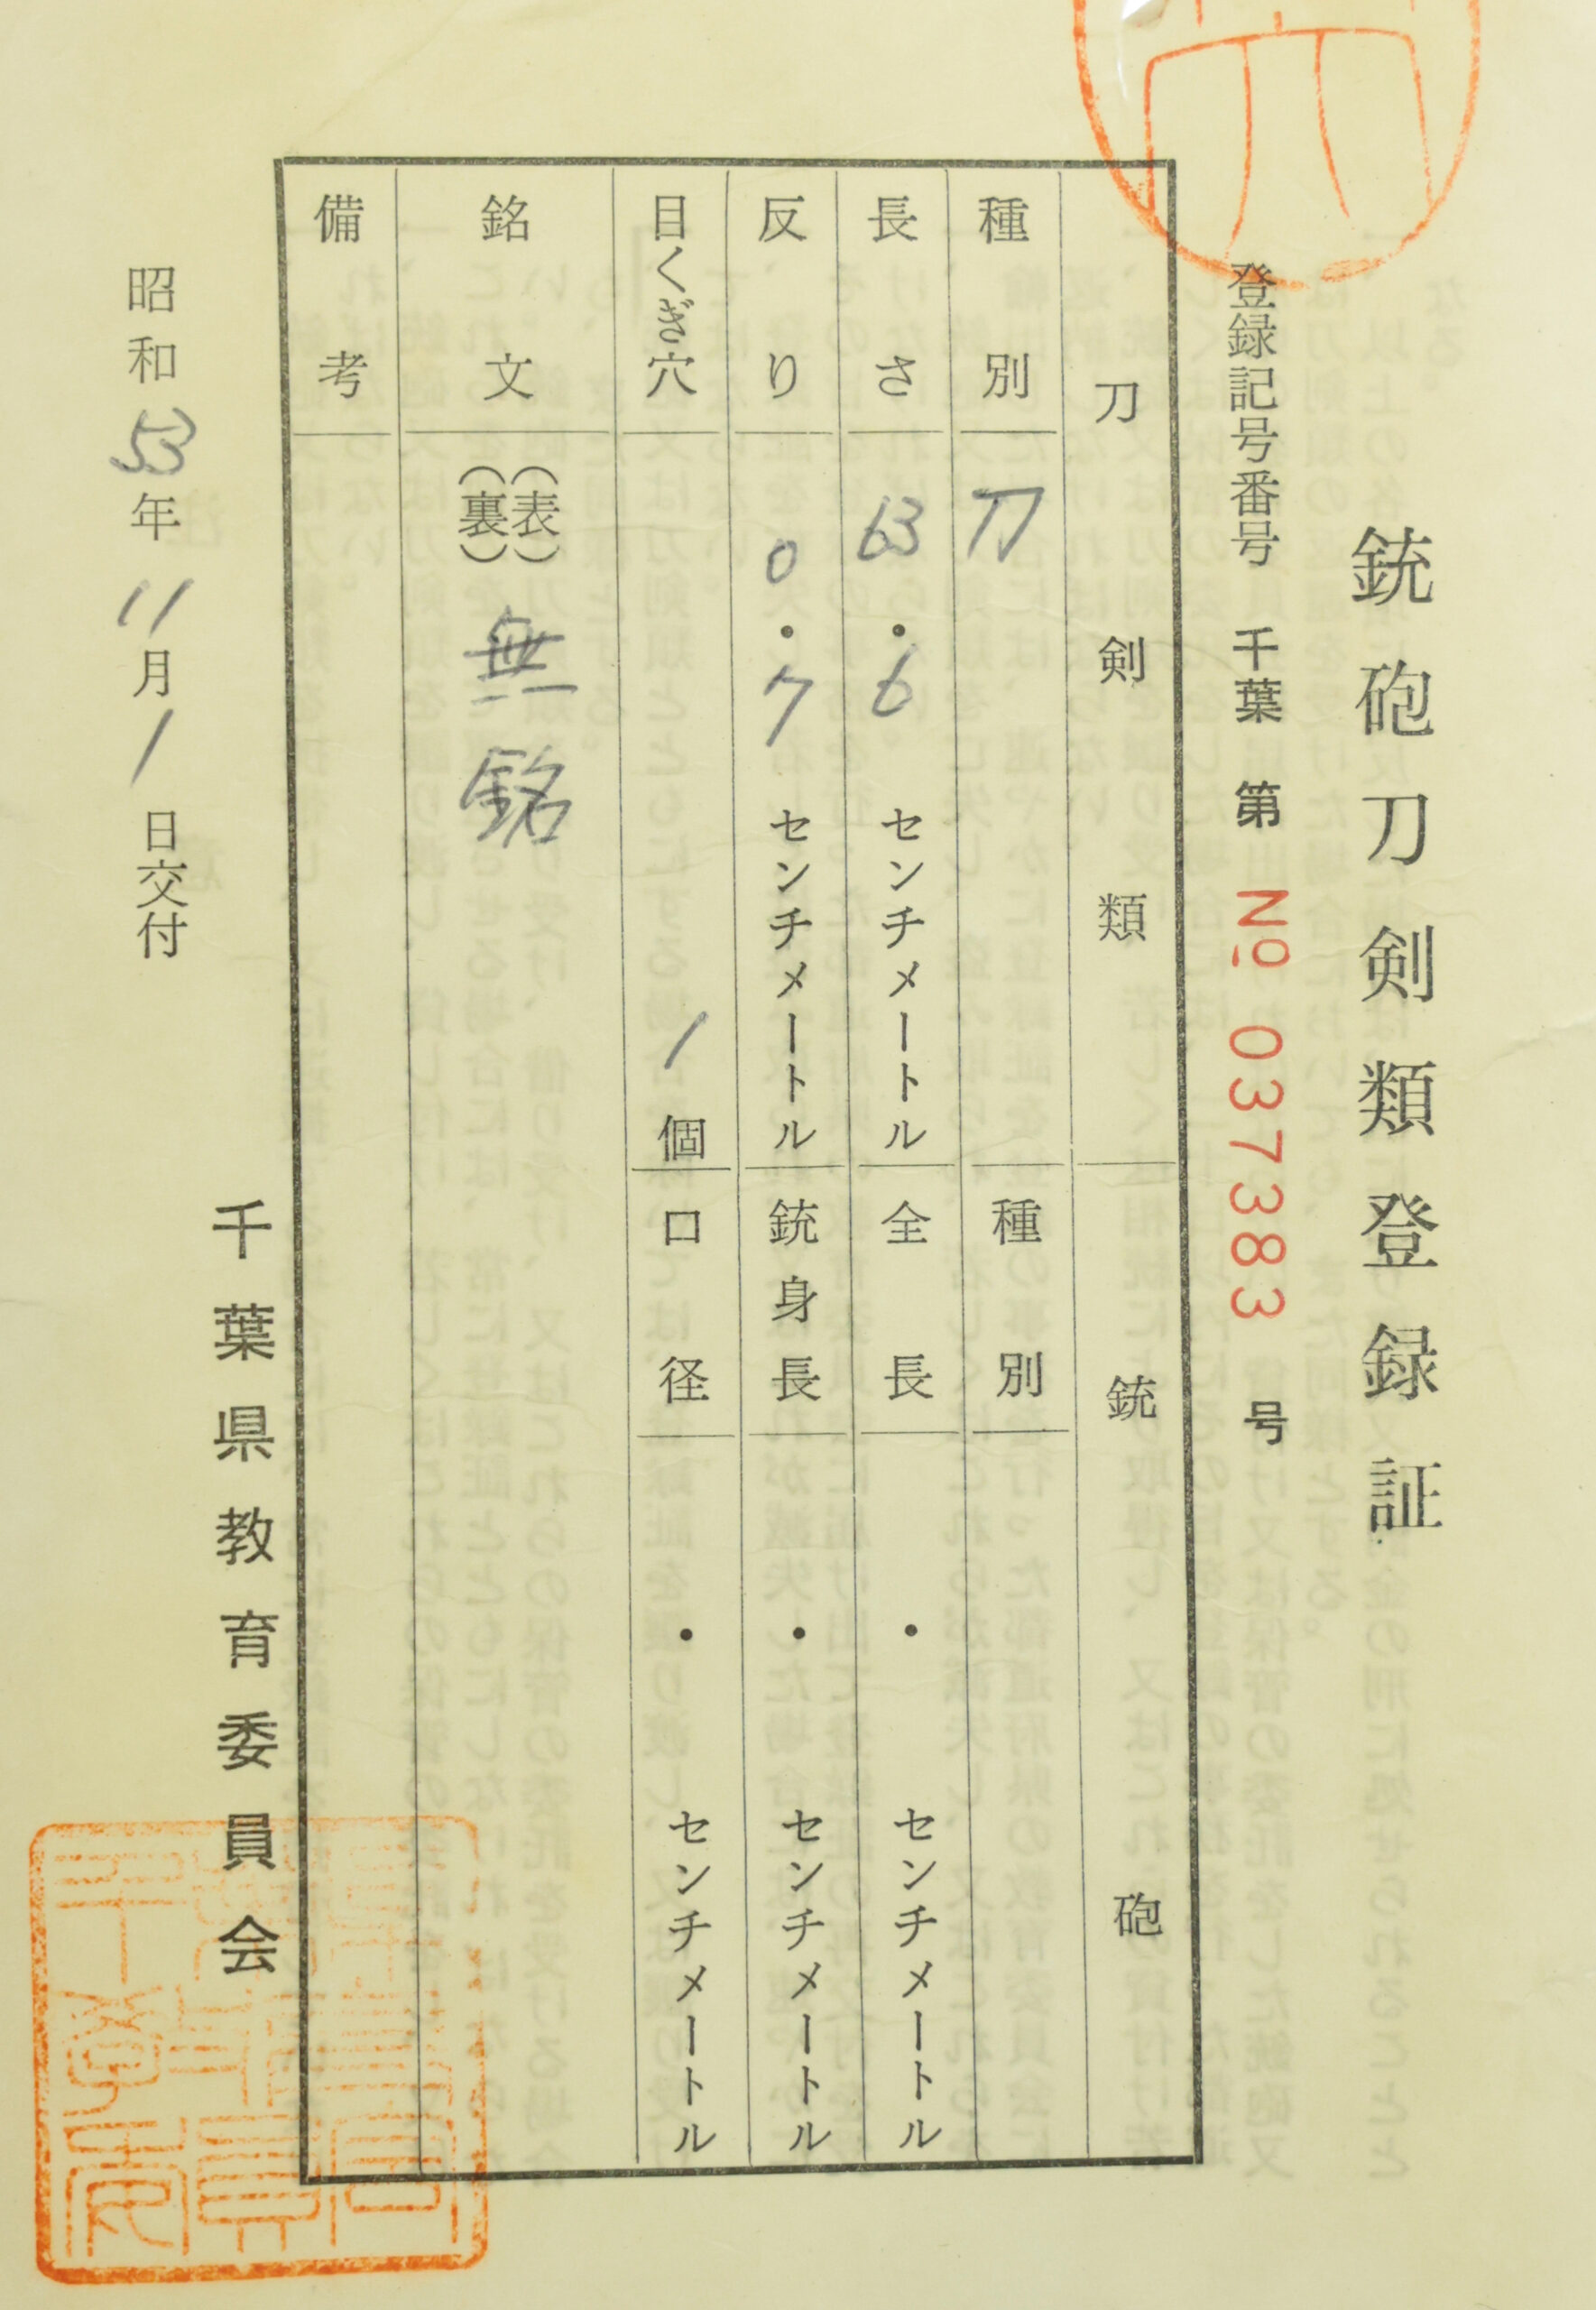 銃砲刀剣類登録証
登録記号番号 千葉 第 № 037383 号
刀剣類 銃砲
種別 刀 種別
長さ 63・6 センチメートル 全長 ・ センチメートル
反り 0・7 センチメートル 銃身長 ・ センチメートル
目くぎ穴 1 個 口径 ・ センチメートル
銘文 (表) (裏) 無銘
備考
千葉県教育委員会
昭和 53 年 11 月 1 日交付